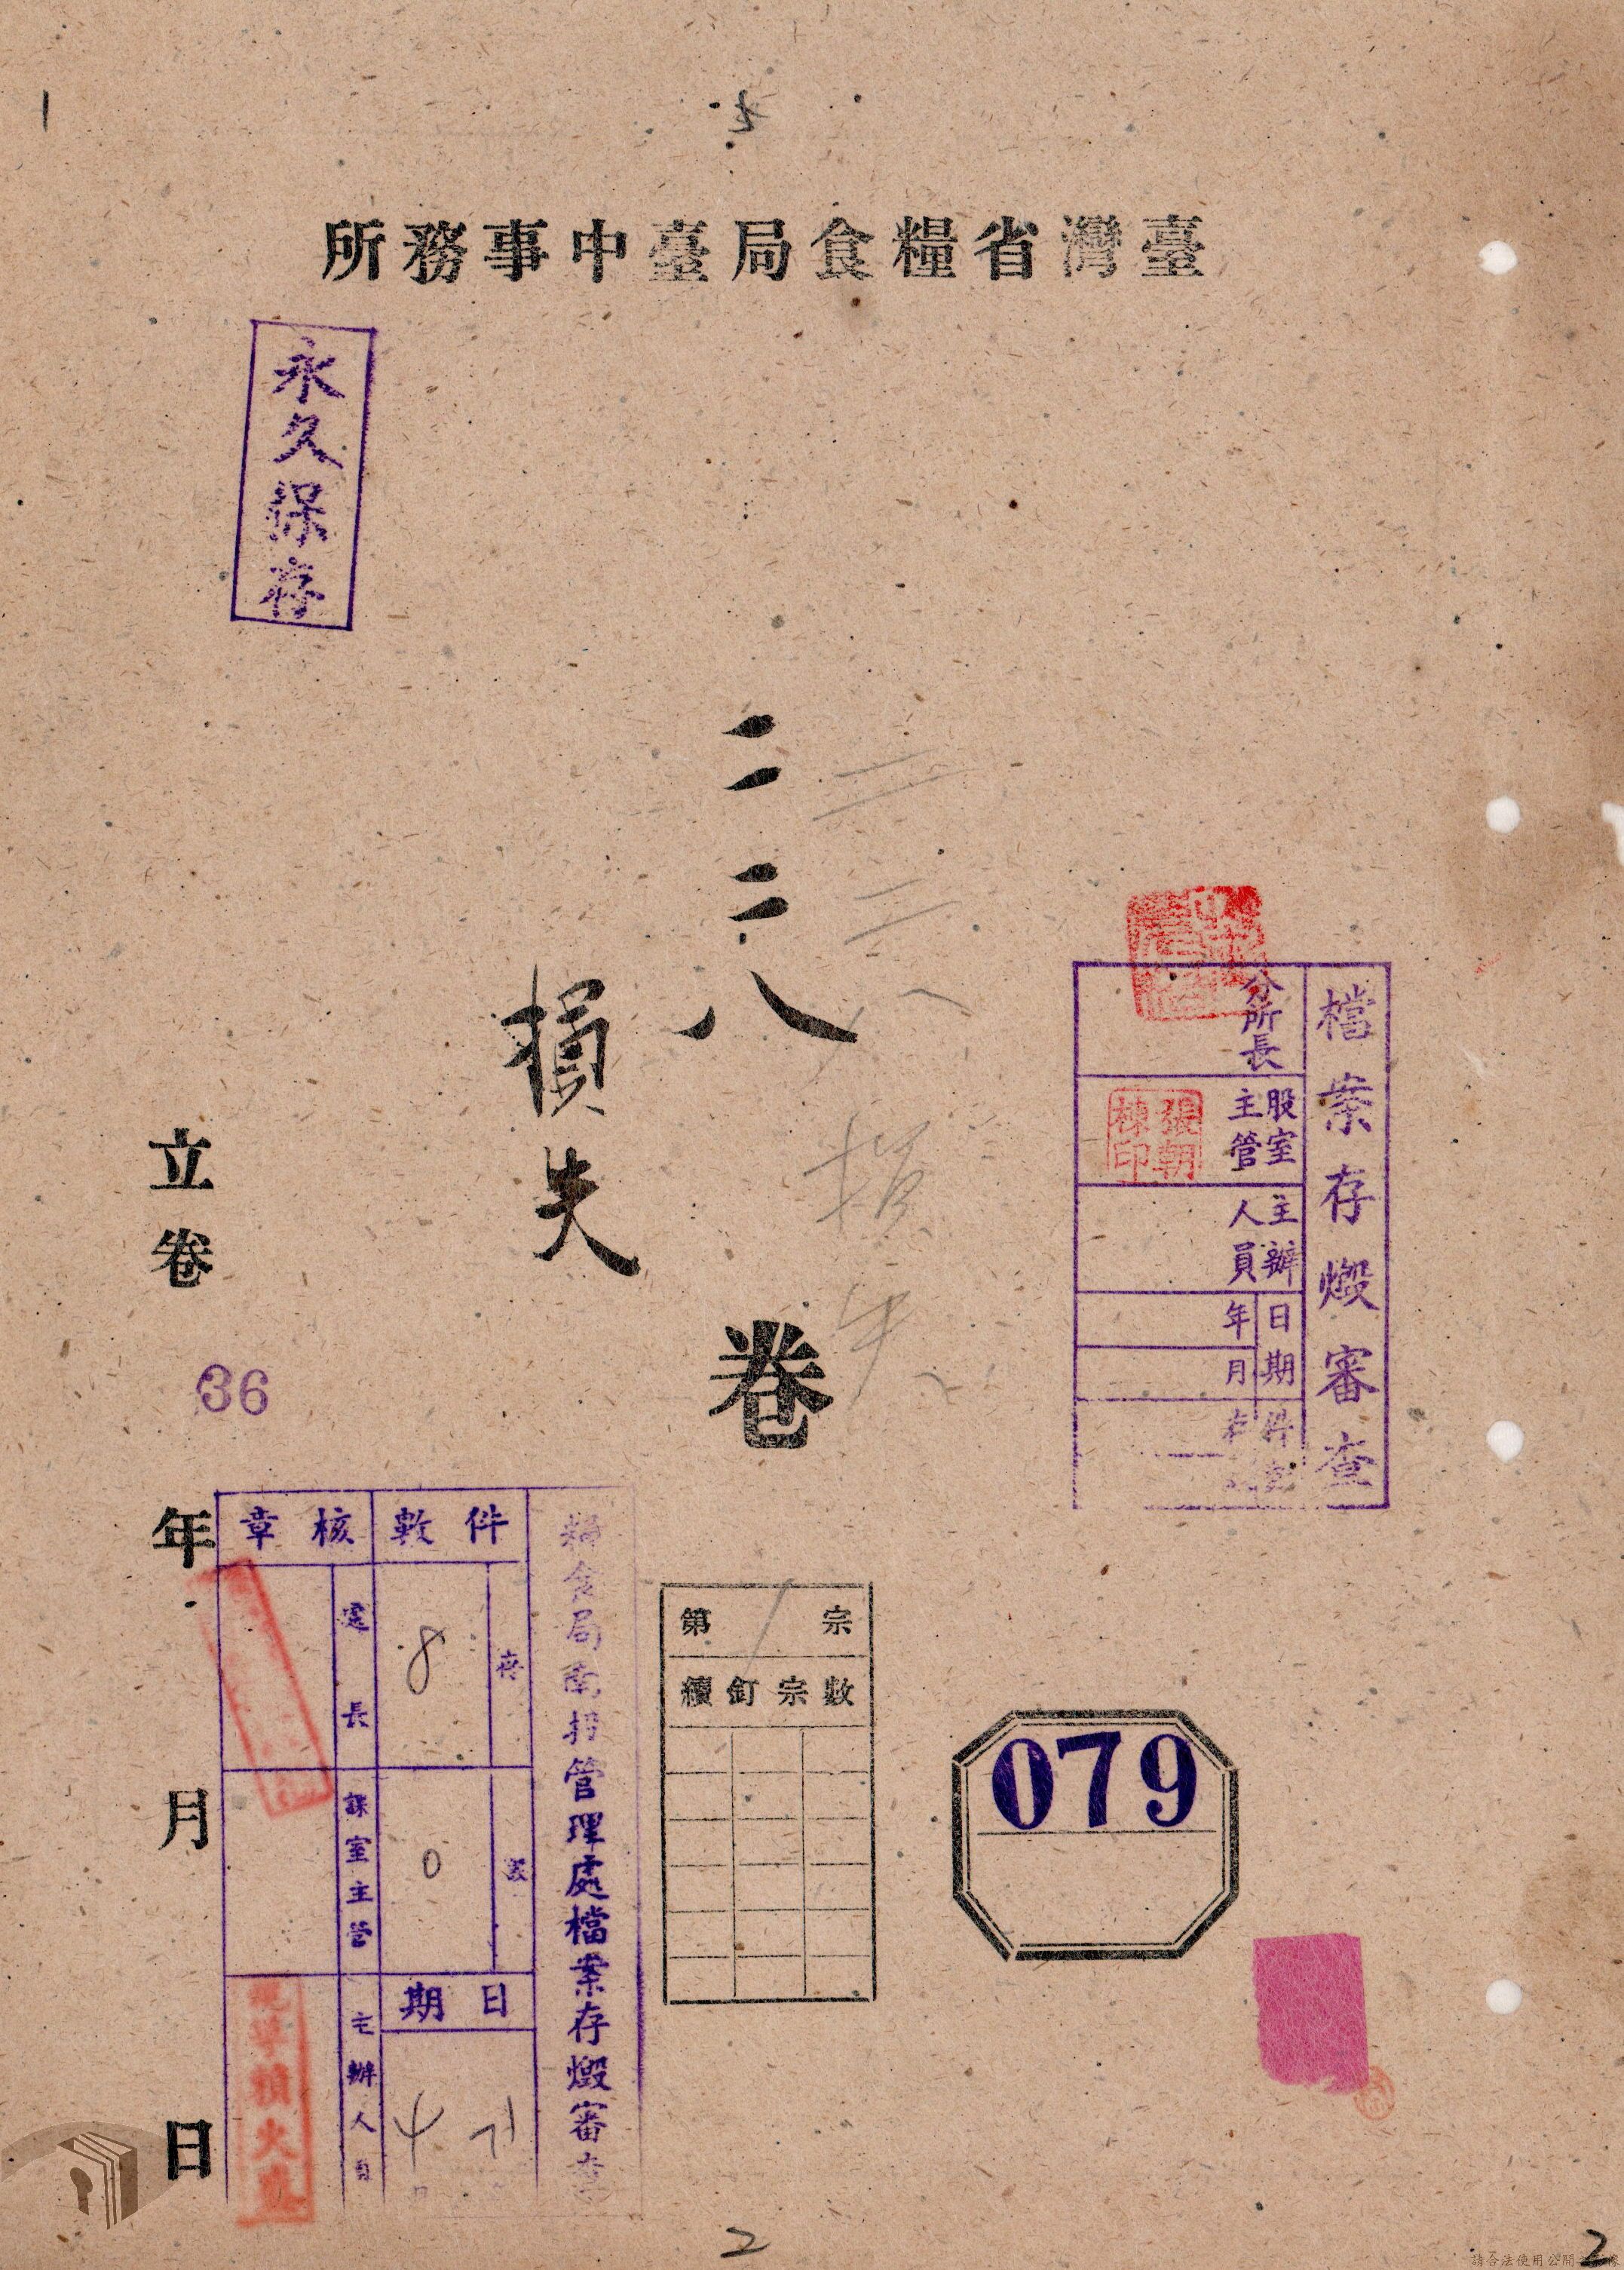 臺灣省糧食局臺中事務所
永久保存
二二八
損失
卷
二二八損失
檔案存燬審查
分所長
股室主管
張朝棟印
主辦人員
日期
年
月
件
立卷
36
年
月
日
糧食局南投管理處檔案存燬審查
件數
存
8
燬
0
日期
4
核章
處長
課室主管
主辦人員
第 1 宗
續釘宗數
079
2
2
請合法使用公開